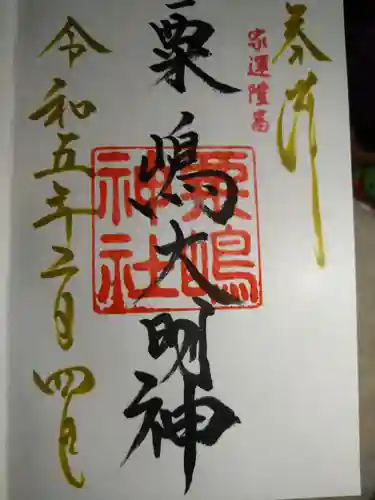 奉拝
家運隆昌
粟嶋大明神
粟嶋
神社
令和五年二月四日